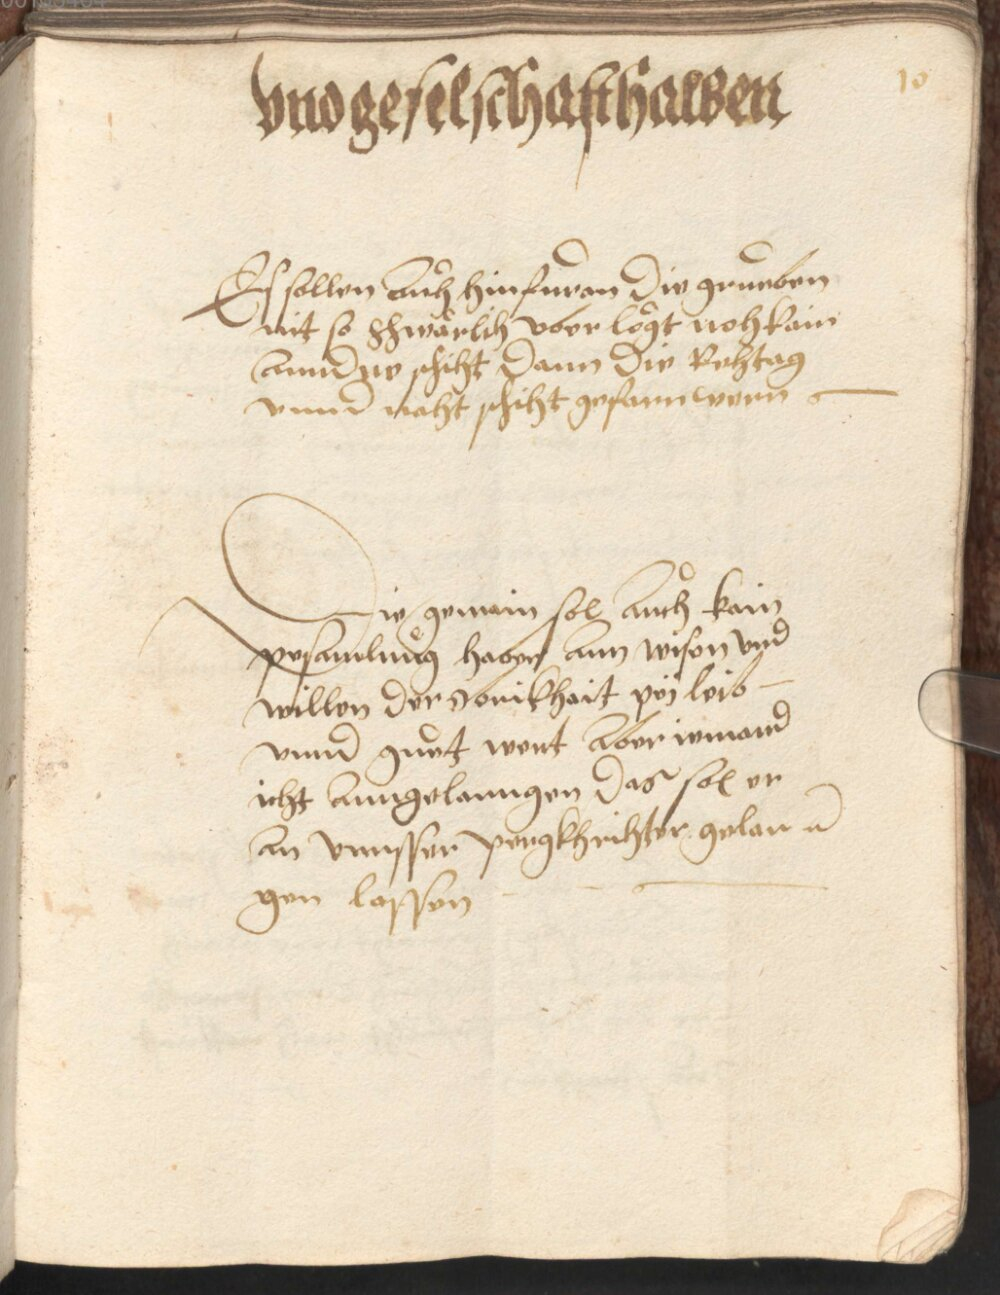 00105404
10
vnd geselschafft halben
Es sollen auch hinfuran die grueben
nit so schwärlich uberlegt noch kain
anndre schicht dann die Rechtag
vnnd nacht schicht gefarn wern
Die gemain sol auch kain
pesamlung haben ann wissen vnd
willen der Obrikhait pej leib
vnnd guet wert aber iemand
icht anngelanngen das sol er
an vnnsser pergkhrichter gelan
gen lassen